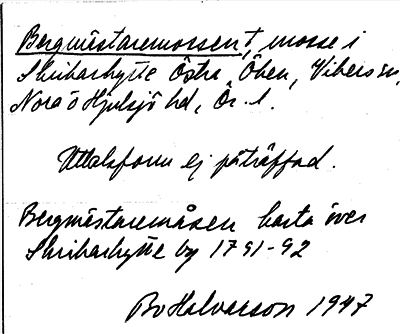 Bergmästaremossen†, mosse i
Skribarhytte Östra Öhen, Vikers sn,
Nora o Hjulsjö hd, Ör. l.
Uttalsform ej påträffad.
Bergmästaremåsen karta över
Skribarhytte by 1791-92
Bo Halvarson 1947